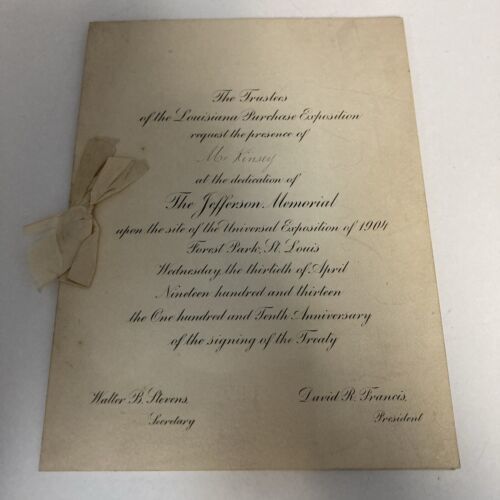 The Trustees
of the Louisiana Purchase Exposition
request the presence of
Mr Kinsey
at the dedication of
The Jefferson Memorial
upon the site of the Universal Exposition of 1904
Forest Park, St. Louis
Wednesday, the thirtieth of April
Nineteen hundred and thirteen
the One hundred and Tenth Anniversary
of the signing of the Treaty
Walter B. Stevens,
Secretary
David R. Francis,
President